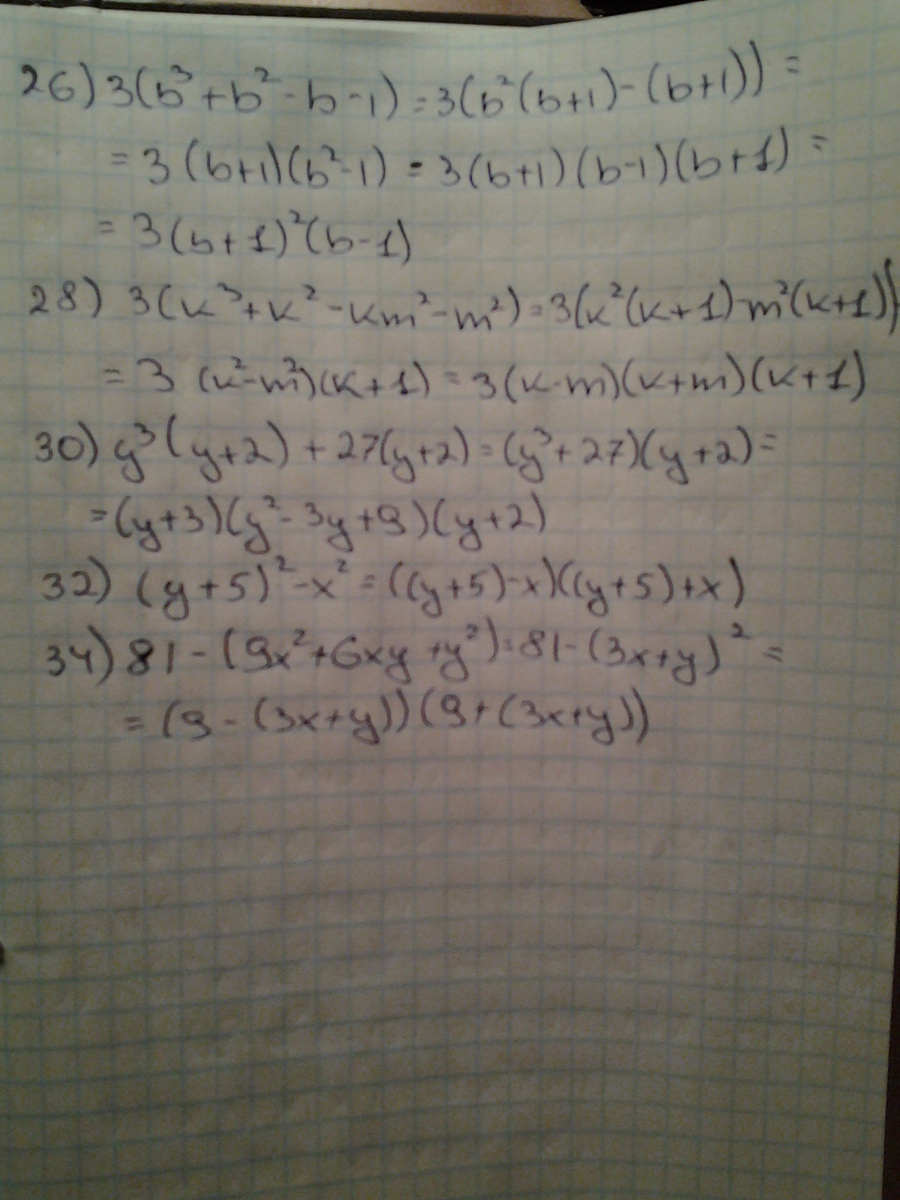 26) 3(b³+b²-b-1)=3(b²(b+1)-(b+1))=
=3(b+1)(b²-1)=3(b+1)(b-1)(b+1)=
=3(b+1)²(b-1)
28) 3(k³+k²-km²-m²)=3(k²(k+1)-m²(k+1))
=3 (k²-m²)(k+1)=3(k-m)(k+m)(k+1)
30) y³(y+2)+27(y+2)=(y³+27)(y+2)=
=(y+3)(y²-3y+9)(y+2)
32) (y+5)²-x²=((y+5)-x)((y+5)+x)
34) 81-(9x²+6xy+y²)=81-(3x+y)²=
=(9-(3x+y))(9+(3x+y))